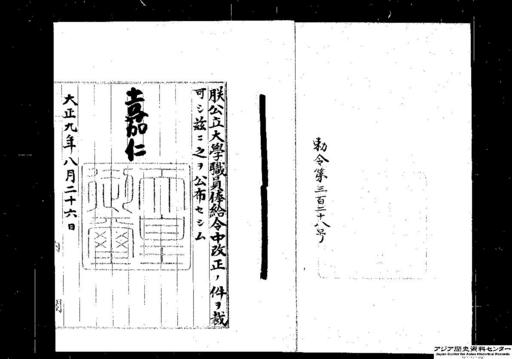 勅令第三百二十八号
朕公立大學職員俸給令中改正ノ件ヲ裁
可シ茲ニ之ヲ公布セシム
嘉仁
天皇
御璽
大正九年八月二十六日
アジア歴史資料センター
Japan Center for Asian Historical Records